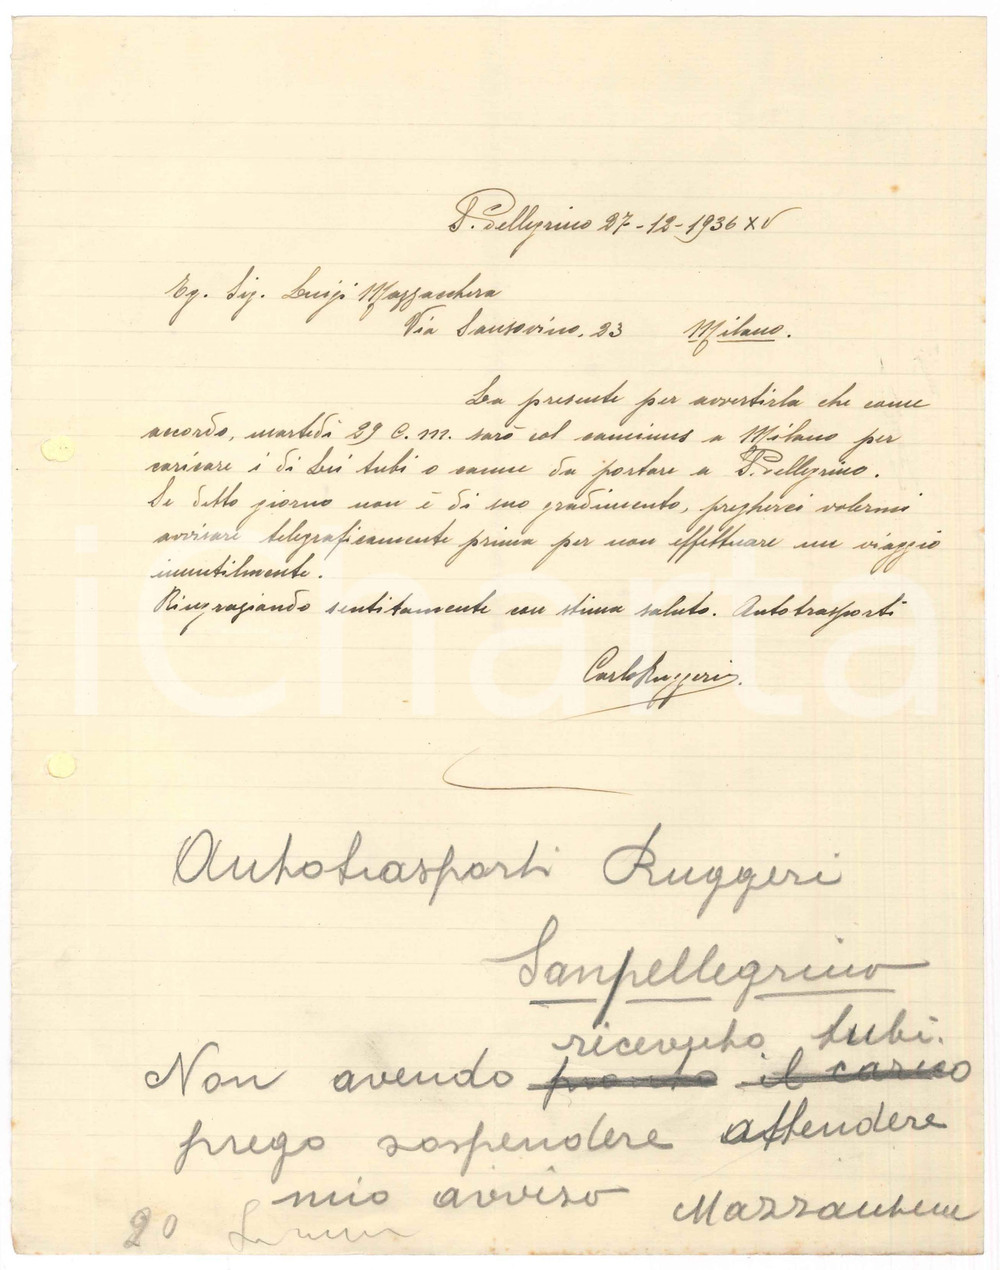 S. Pellegrino 27-12-1936 XV
Eg. Sig. Luigi Mazzucchera
Via Sansovino, 23 Milano.
La presente per avvertirla che come
accordo, martedì 29 c.m. sarò col camions a Milano per
caricare i di Lei tubi o canne da portare a S. Pellegrino.
Se detto giorno non è di suo gradimento, pregherei volermi
avvisare telegraficamente prima per non effettuare un viaggio
inutilmente.
Ringraziando sentitamente con stima saluto. Autotrasporti
Carlo Ruggeri.
iCharta
Autotrasporti Ruggeri
Sanpellegrino
ricevuto tubi.
Non avendo pronto il carico
prego sospendere attendere
mio avviso
20